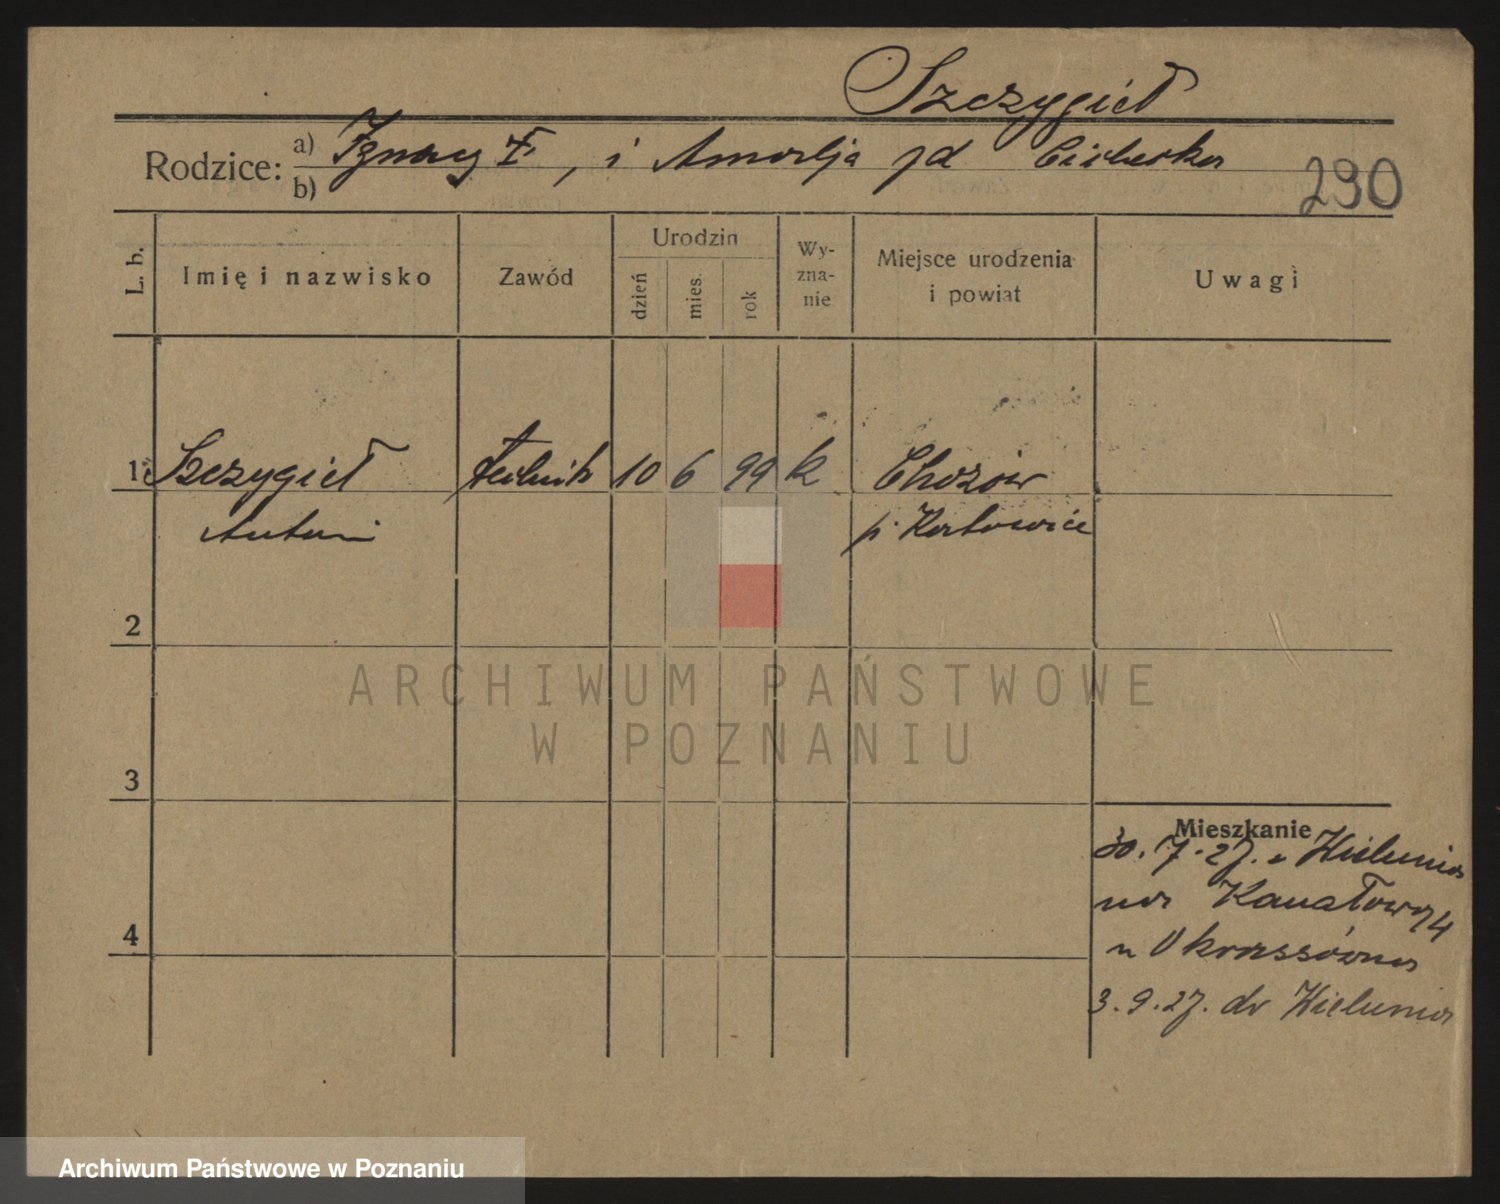 Szczygieł
Rodzice: a) Ignacy †, i Amalja zd Cichecka
b)
290
L. b.
Imię i nazwisko
Zawód
Urodzin
dzień
mies.
rok
Wy-
zna-
nie
Miejsce urodzenia
i powiat
Uwagi
1 Szczygieł technik 10 6 99 k Chozów
Antoni p. Katowice
2
3
4
Mieszkanie
30.7.27. z Wielunia
na Kanałowa
u Okrassówna
3.9.27. do Wielunia
ARCHIWUM PAŃSTWOWE
W POZNANIU
Archiwum Państwowe w Poznaniu